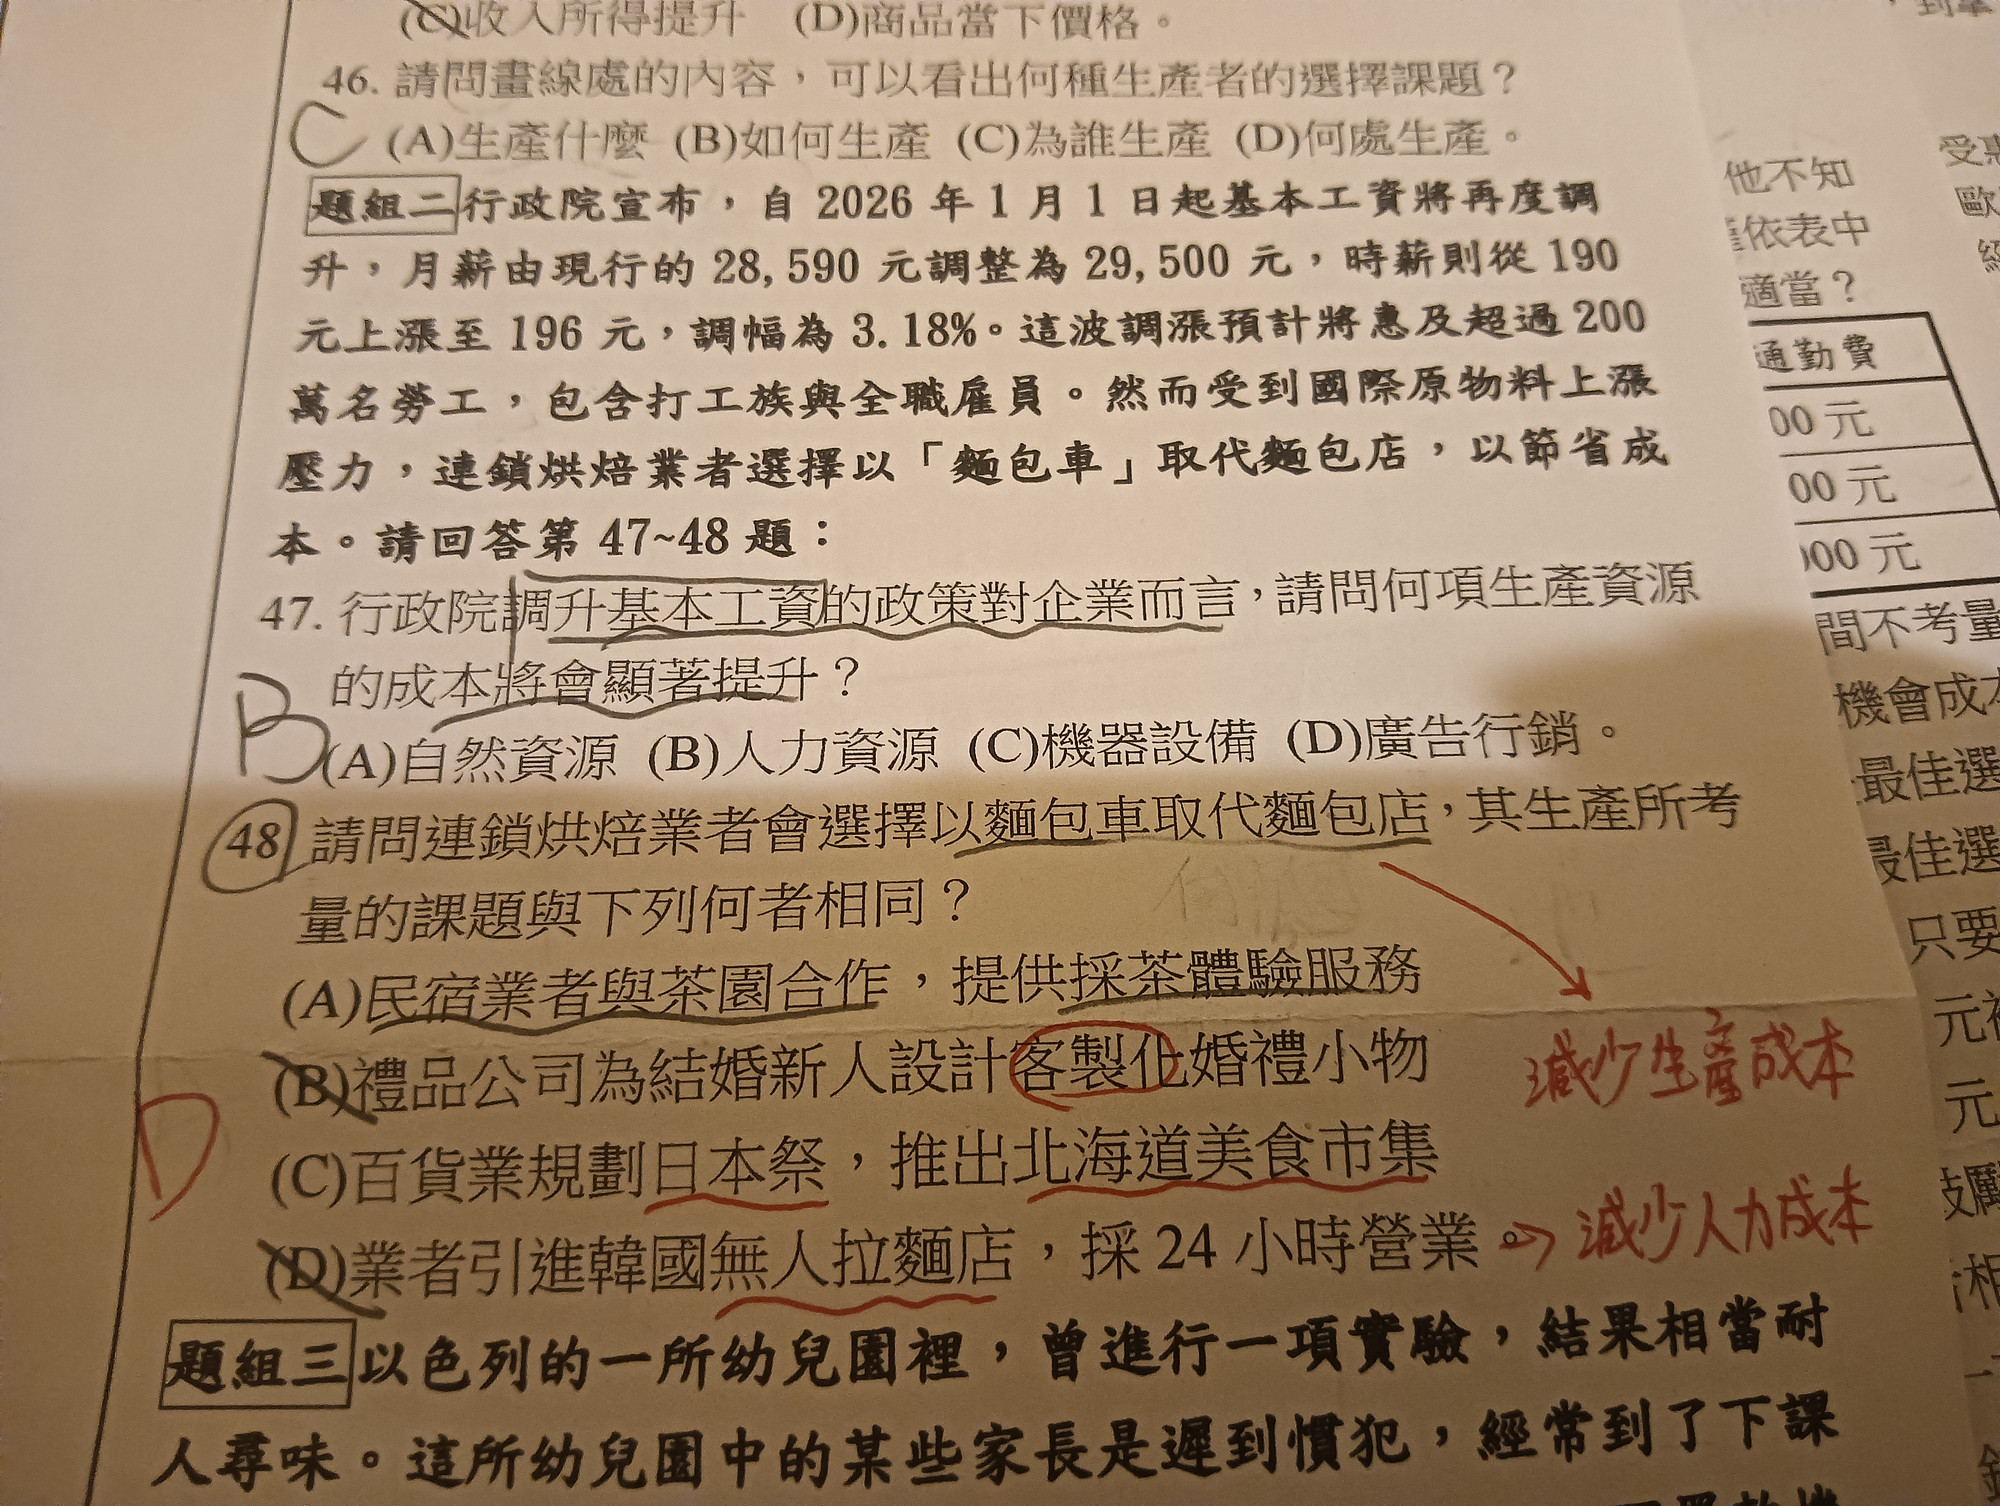 (C)收入所得提升 (D)商品當下價格。
46. 請問畫線處的內容，可以看出何種生產者的選擇課題？
C (A)生產什麼 (B)如何生產 (C)為誰生產 (D)何處生產。
題組二 行政院宣布，自 2026 年 1 月 1 日起基本工資將再度調
升，月薪由現行的 28,590 元調整為 29,500 元，時薪則從 190
元上漲至 196 元，調幅為 3.18%。這波調漲預計將惠及超過 200
萬名勞工，包含打工族與全職雇員。然而受到國際原物料上漲
壓力，連鎖烘焙業者選擇以「麵包車」取代麵包店，以節省成
本。請回答第 47~48 題：
47. 行政院調升基本工資的政策對企業而言，請問何項生產資源
的成本將會顯著提升？
B (A)自然資源 (B)人力資源 (C)機器設備 (D)廣告行銷。
48 請問連鎖烘焙業者會選擇以麵包車取代麵包店，其生產所考
量的課題與下列何者相同？
(A)民宿業者與茶園合作，提供採茶體驗服務
(B)禮品公司為結婚新人設計客製化婚禮小物
減少生產成本
D
(C)百貨業規劃日本祭，推出北海道美食市集
(D)業者引進韓國無人拉麵店，採 24 小時營業。→ 減少人力成本
題組三 以色列的一所幼兒園裡，曾進行一項實驗，結果相當耐
人尋味。這所幼兒園中的某些家長是遲到慣犯，經常到了下課
他不知
依表中
適當？
通勤費
00 元
00 元
000 元
間不考量
機會成本
最佳選
最佳選
只要
元
元
受惠
歐